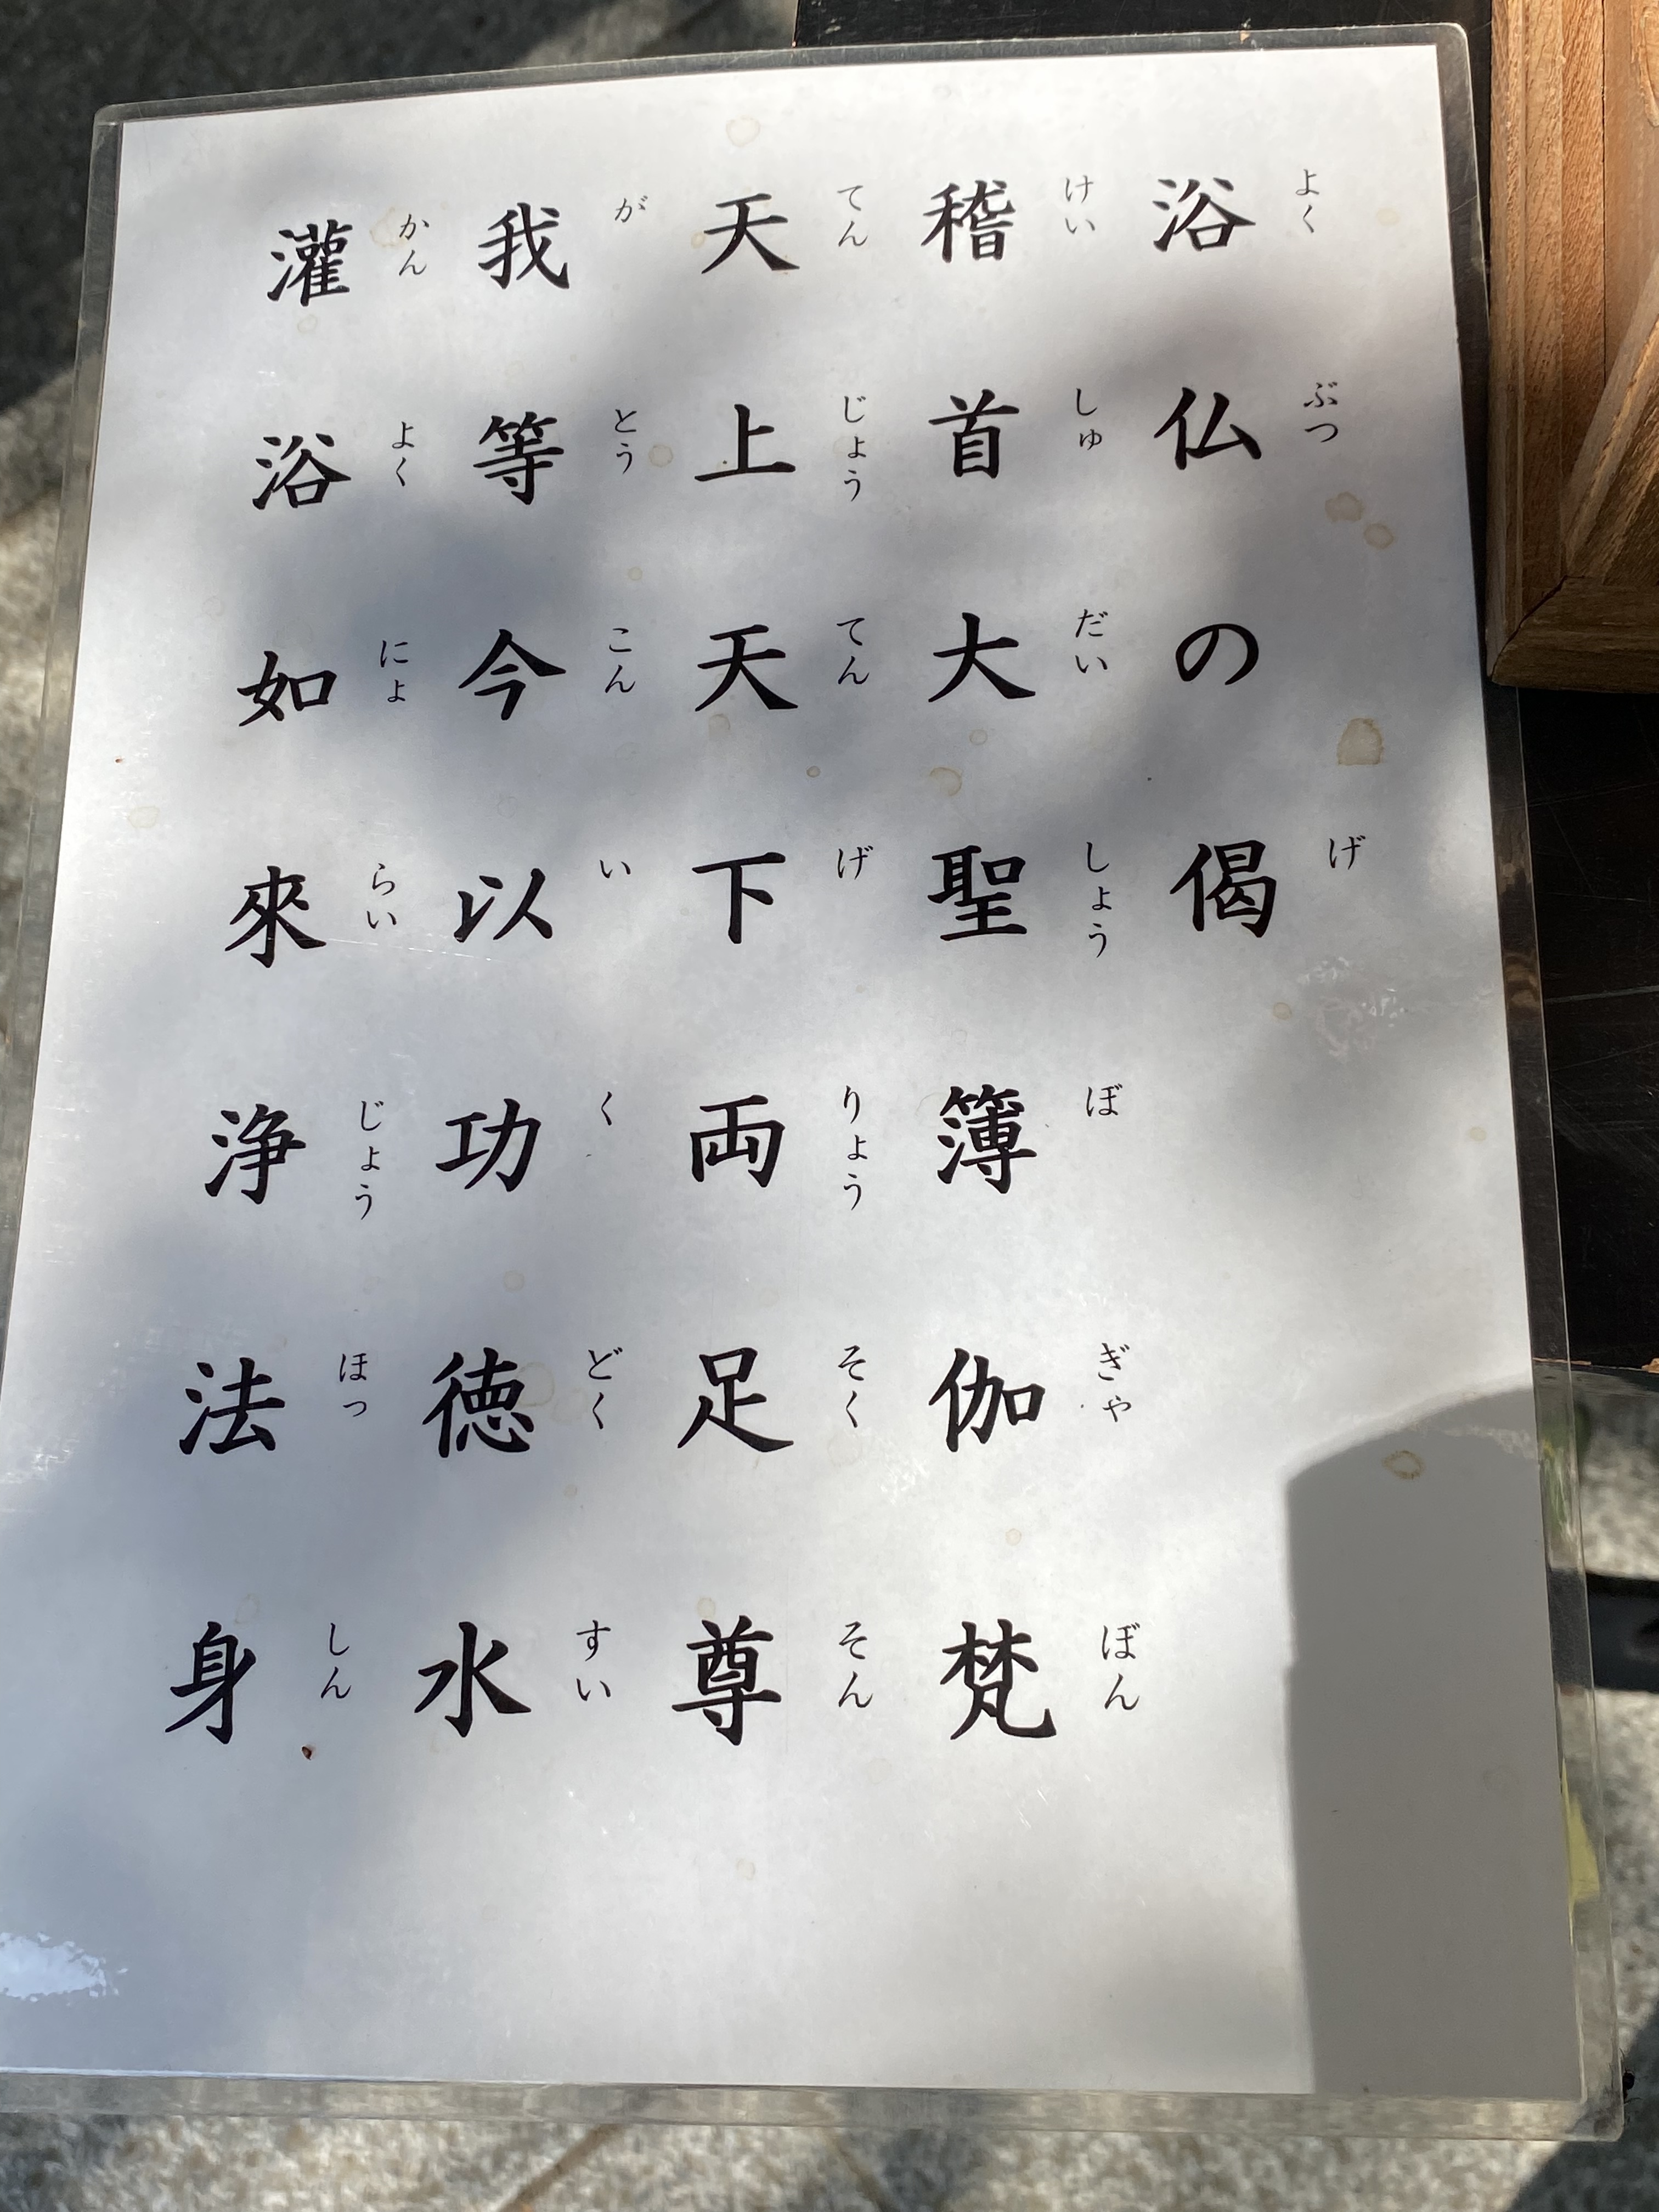 浴仏の偈
よくぶつ げ
稽首大聖簿伽梵
けいしゅだいしょうぼぎゃぼん
天上天下両足尊
てんじょうてんげりょうそくそん
我等今以功徳水
がとうこんいくどくすい
灌浴如來浄法身
かんよくにょらいじょうほっしん